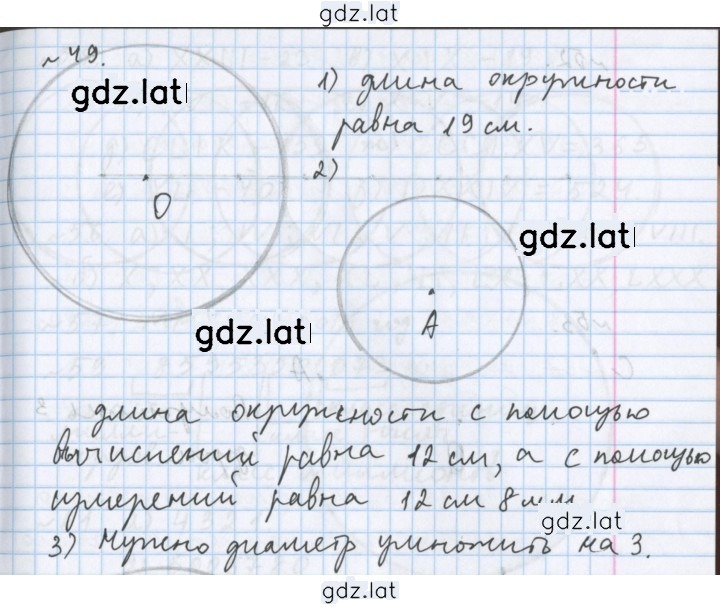 gdz.lat
№49.
gdz.lat
1) длина окружности
равна 19 см.
O
2)
gdz.lat
gdz.lat
A
длина окружности с помощью
вычислений равна 12 см, а с помощью
измерений равна 12 см 8 мм
gdz.lat
3) Нужно диаметр умножить на 3.
gdz.lat